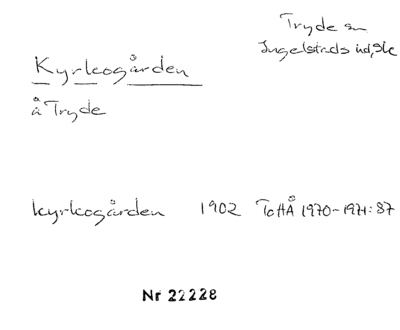 Tryde sn
Ingelstads hd, Sk
Kyrkogården
å Tryde
kyrkogården 1902 ToHÅ 1970-1971:87
Nr 22228